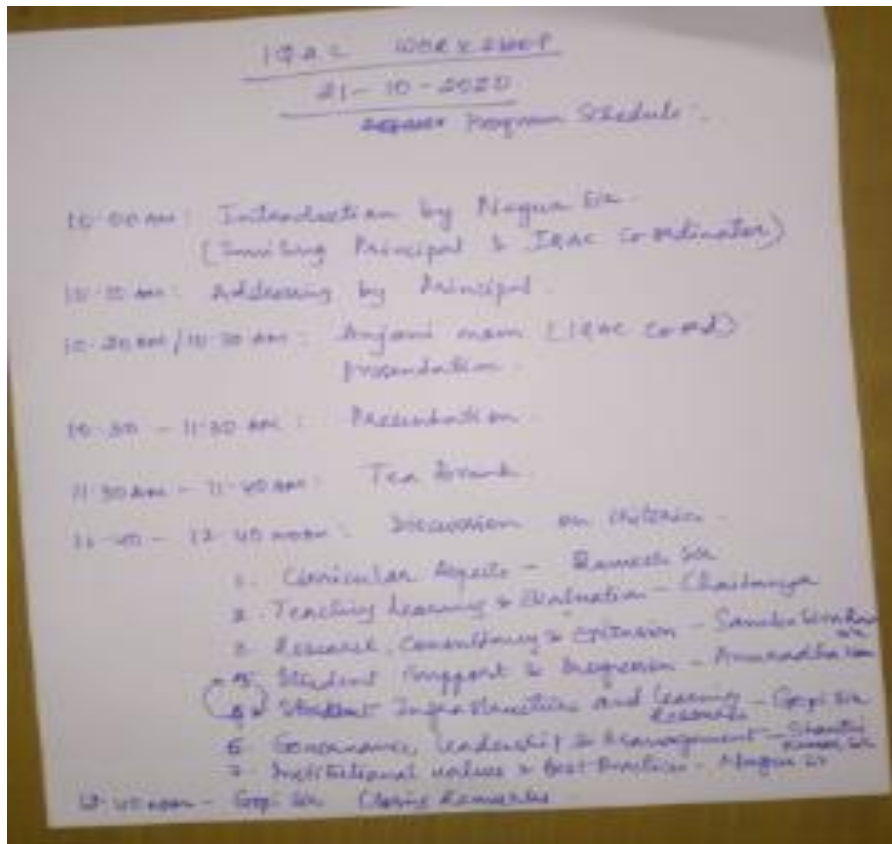 IQAC WORKSHOP
21-10-2020
Program Schedule:-
10:00 AM: Introduction by Nagua Sir
(Inviting Principal & IQAC Co-ordinator)
10:10 AM: Addressing by Principal.
10:20 AM/10:30 AM: Anjani mam (IQAC coord)
presentation.
10:30 - 11:30 AM: Presentation.
11:30 AM - 11:40 AM: Tea Break.
11:40 - 12:40 noon: Discussion on Criteria.
1. Curricular Aspects - Ramesh Sir
2. Teaching Learning & Evaluation - Chaitanya
3. Research, Consultancy & Extension - Sir
5. Student Support & Progression - Anuradha mam
4. Infrastructure and Learning
Resources - Gopi Sir
6. Governance, Leadership & Management - Shanthi
Kumar Sir
7. Institutional values & Best Practices - Nagua Sir
12:40 noon - Gopi Sir Closing Remarks.